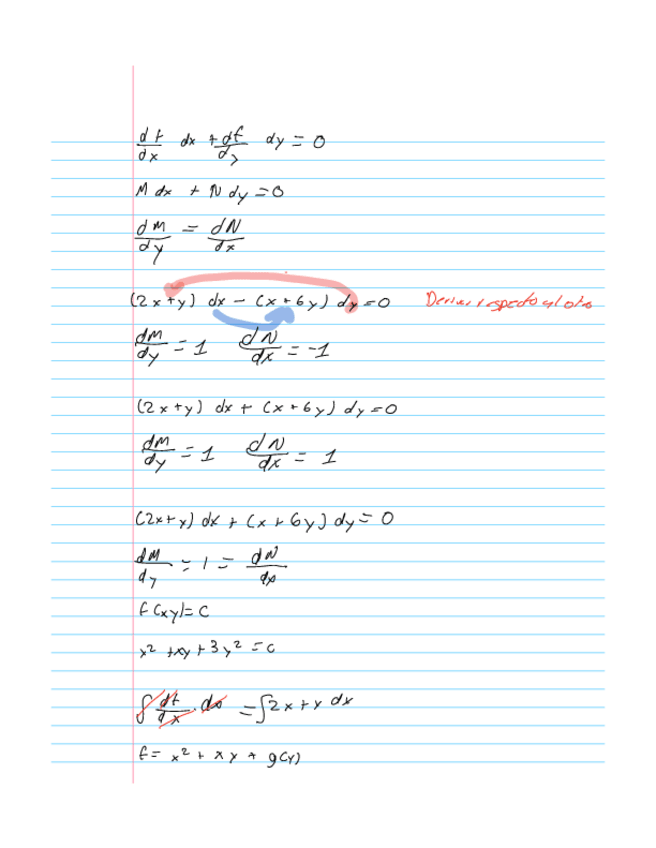 df/dx dx + df/dy dy = 0
M dx + N dy = 0
dM/dy = dN/dx
(2x+y) dx - (x+6y) dy = 0 Derivar respecto al otro
dM/dy = 1 dN/dx = -1
(2x+y) dx + (x+6y) dy = 0
dM/dy = 1 dN/dx = 1
(2x+y) dx + (x+6y) dy = 0
dM/dy = 1 = dN/dx
f(xy) = C
x² + xy + 3y² = C
∫ df/dx · dx = ∫ 2x+y dx
f = x² + xy + g(y)